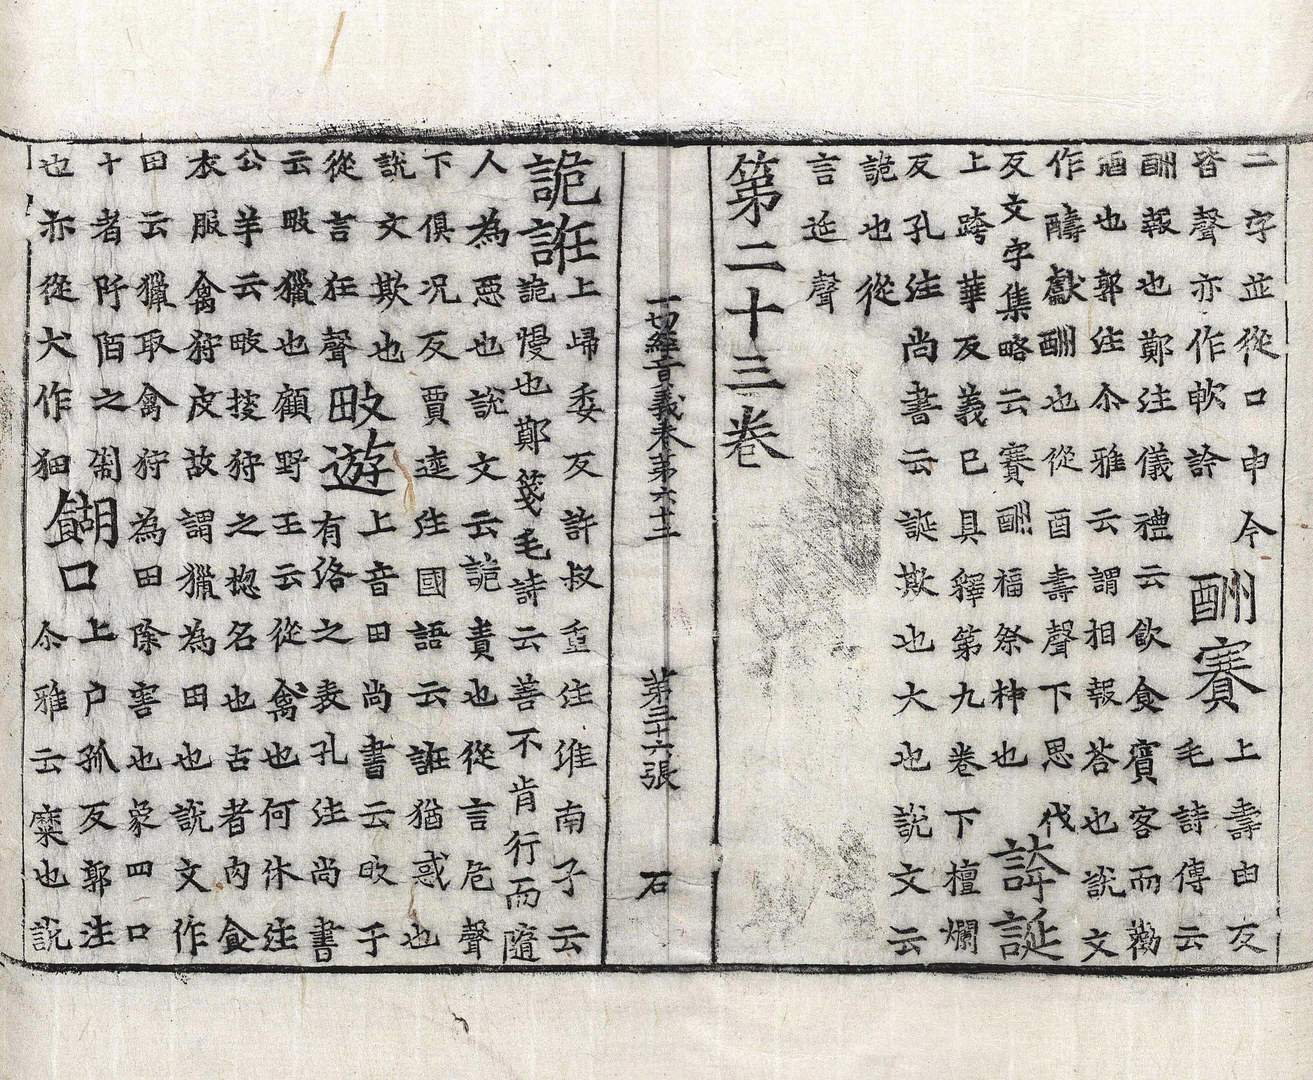 二字並從口申今
皆聲亦作軟訡
酬賽
上壽由反
毛詩傳云
酬報也鄭注儀禮云飲食賓客而勸
酒也郭注尒雅云謂相報荅也說文
作醻獻酬也從酉壽聲下思伐
反文字集略云賽酬福祭神也
誇誕
上跨華反義已具釋第九卷下檀爛
反孔注尚書云誕欺也大也說文云
詭也從
言延聲
第二十三卷
一切經音義卷第六十三 第三十六張 石
詭誑
上歸委反許叔重注淮南子云
詭慢也鄭箋毛詩云善不肯行而隨
人為惡也說文云詭責也從言危聲
下俱況反賈逵注國語云誑猶惑也
說文欺也
從言狂聲
畋遊
上音田尚書云畋于
有洛之表孔注尚書
云畋獵也顧野王云從禽也何休注
公羊云畋捘狩之揔名也古者肉食
衣服禽狩皮故謂獵為田也說文作
田云獵取禽狩為田除害也象四口
十者阡陌之制
也亦從犬作
餬口
上户孤反郭注
尒雅云糜也說